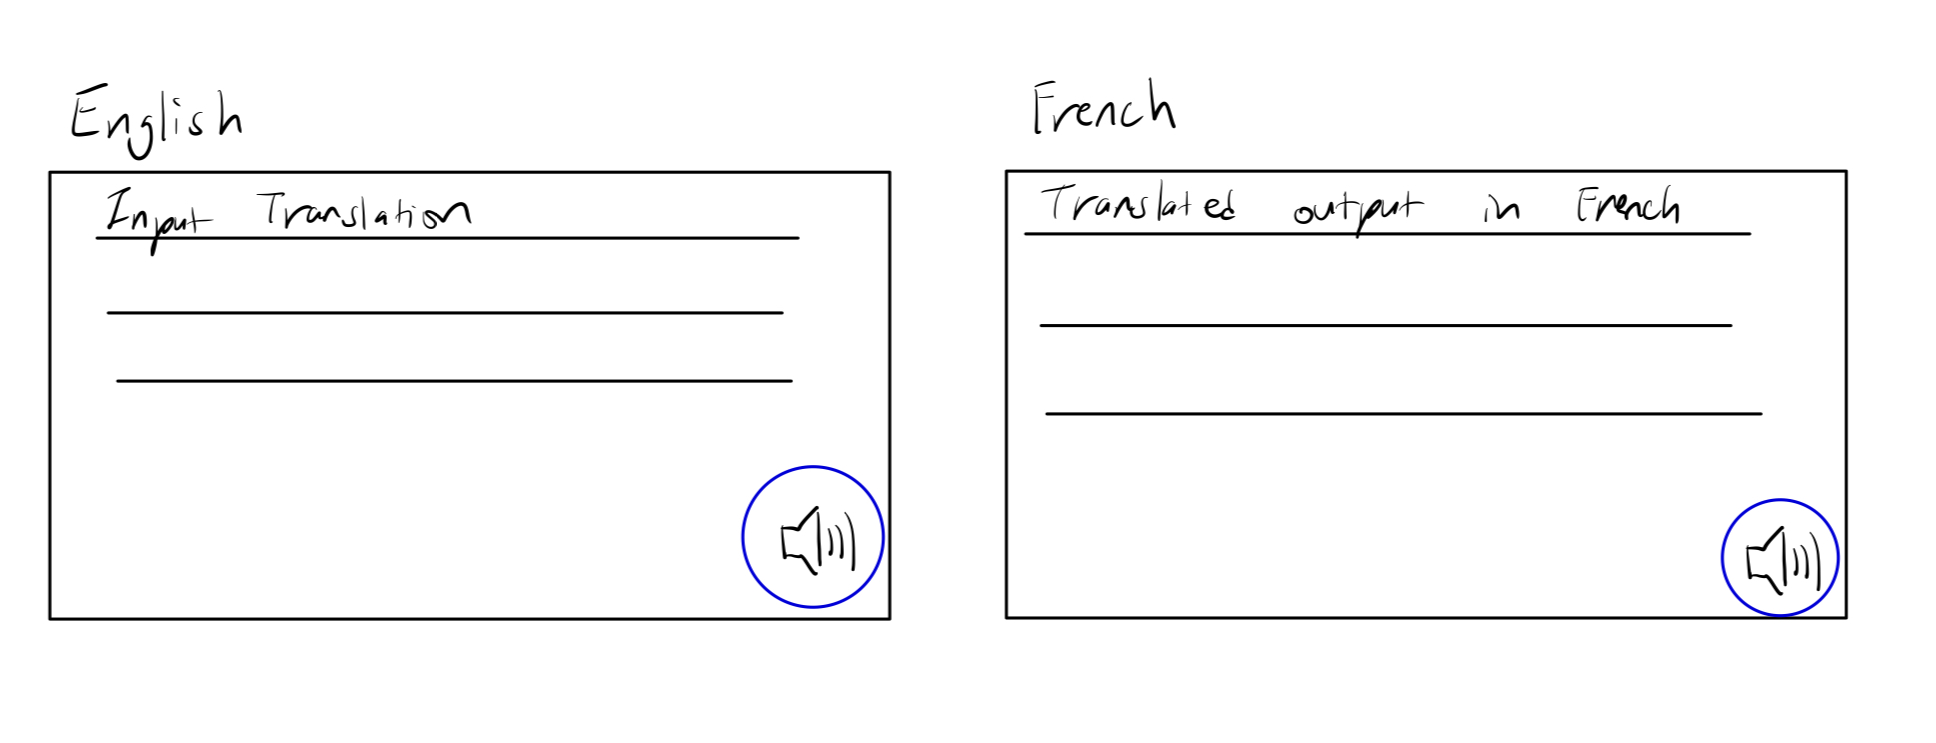 English
Input Translation
French
Translated output in French